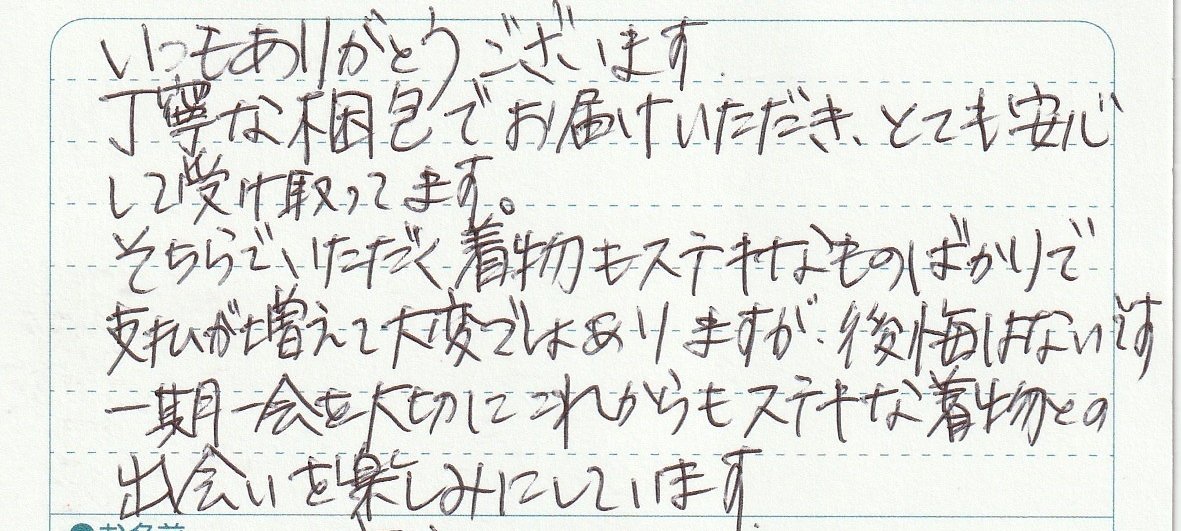 いつもありがとうございます.
丁寧な梱包でお届けいただき、とても安心
して受け取ってます。
そちらでいただく着物もステキなものばかりで
支払が増えて大変ではありますが、後悔はないです
一期一会を大切にこれからもステキな着物との
出会いを楽しみにしています.
●お名前